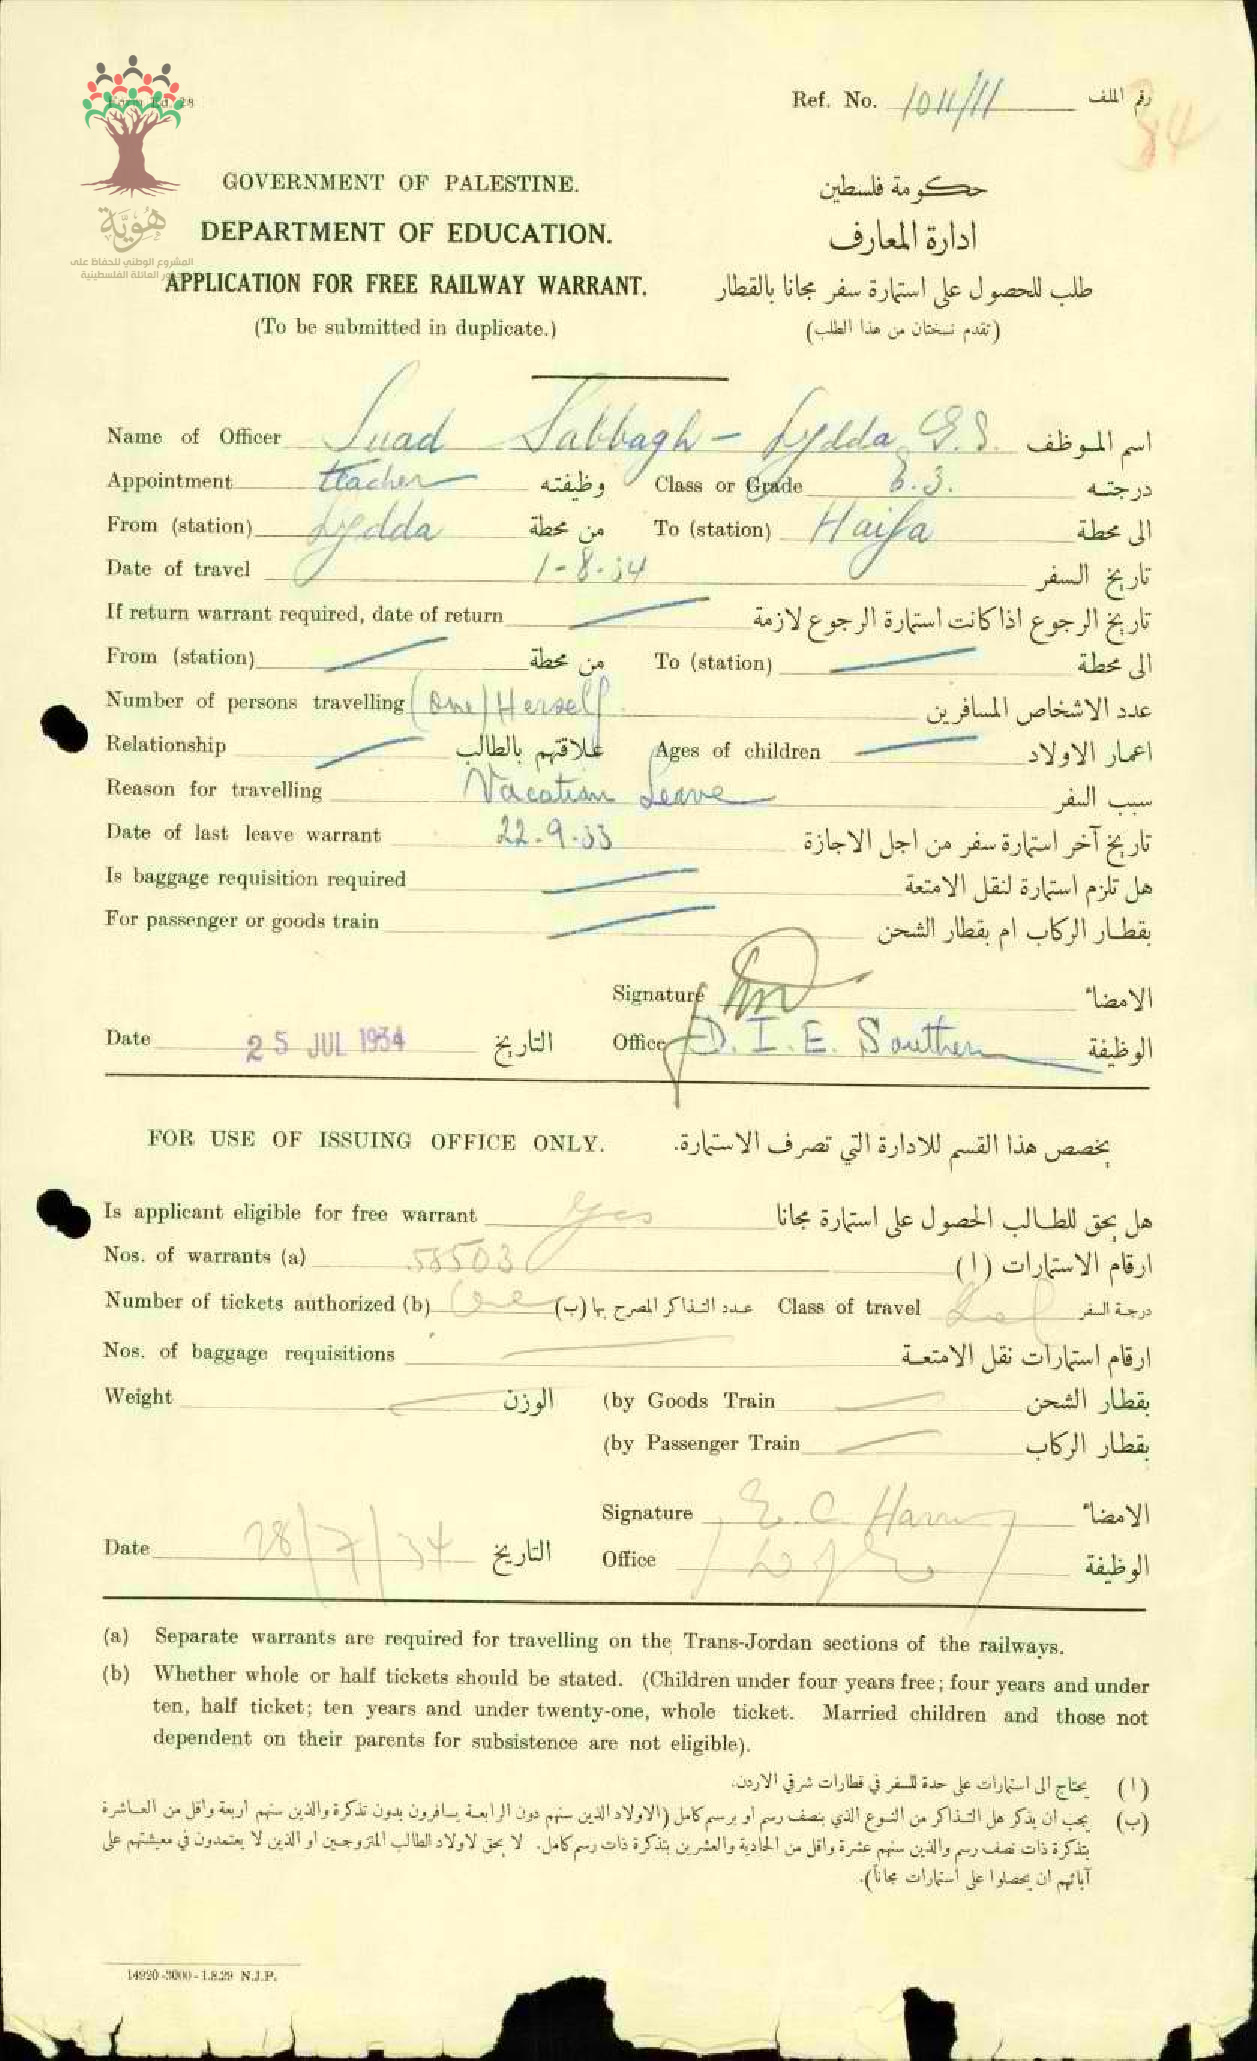 Form Ed. 28
Ref. No. 1011/11 رقم الملف
84
هُوِيَّة
المشروع الوطني للحفاظ على
جذور العائلة الفلسطينية
GOVERNMENT OF PALESTINE. حكومة فلسطين
DEPARTMENT OF EDUCATION. ادارة المعارف
APPLICATION FOR FREE RAILWAY WARRANT. طلب للحصول على استمارة سفر مجانا بالقطار
(To be submitted in duplicate.) (تقدم نسختان من هذا الطلب)
Name of Officer Suad Sabbagh – Lydda G.S. اسم الموظف
Appointment teacher وظيفته Class or Grade 3. درجته
From (station) Lydda من محطة To (station) Haifa الى محطة
Date of travel 1-8-34 تاريخ السفر
If return warrant required, date of return تاريخ الرجوع اذا كانت استمارة الرجوع لازمة
From (station) من محطة To (station) الى محطة
Number of persons travelling (one) Herself عدد الاشخاص المسافرين
Relationship علاقتهم بالطالب Ages of children اعمار الاولاد
Reason for travelling Vacation Leave سبب السفر
Date of last leave warrant 22-9-33 تاريخ آخر استمارة سفر من اجل الاجازة
Is baggage requisition required هل تلزم استمارة لنقل الامتعة
For passenger or goods train بقطار الركاب ام بقطار الشحن
Signature الامضاء
Date 25 JUL 1934 التاريخ Office D. I. E. Southern الوظيفة
FOR USE OF ISSUING OFFICE ONLY. يخصص هذا القسم للادارة التي تصرف الاستمارة.
Is applicant eligible for free warrant Yes هل يحق للطالب الحصول على استمارة مجانا
Nos. of warrants (a) 58503 ارقام الاستمارات (ا)
Number of tickets authorized (b) One عدد التذاكر المصرح بها (ب) Class of travel درجة السفر
Nos. of baggage requisitions ارقام استمارات نقل الامتعة
Weight الوزن (by Goods Train بقطار الشحن
(by Passenger Train بقطار الركاب
Signature E. C. الامضاء
Date 28/7/34 التاريخ Office الوظيفة
(a) Separate warrants are required for travelling on the Trans-Jordan sections of the railways.
(b) Whether whole or half tickets should be stated. (Children under four years free; four years and under
ten, half ticket; ten years and under twenty-one, whole ticket. Married children and those not
dependent on their parents for subsistence are not eligible).
(ا) يحتاج الى استمارات على حدة للسفر في قطارات شرقي الاردن.
(ب) يجب ان يذكر هل التذاكر من النوع الذي بنصف رسم او برسم كامل (الاولاد الذين سنهم دون الرابعة يسافرون بدون تذكرة والذين سنهم اربعة واقل من العاشرة
بتذكرة ذات نصف رسم والذين سنهم عشرة واقل من الحادية والعشرين بتذكرة ذات رسم كامل. لا يحق لاولاد الطالب المتزوجين او الذين لا يعتمدون في معيشتهم على
آبائهم ان يحصلوا على استمارات مجاناً).
14920-3000-1.8.29 N.J.P.